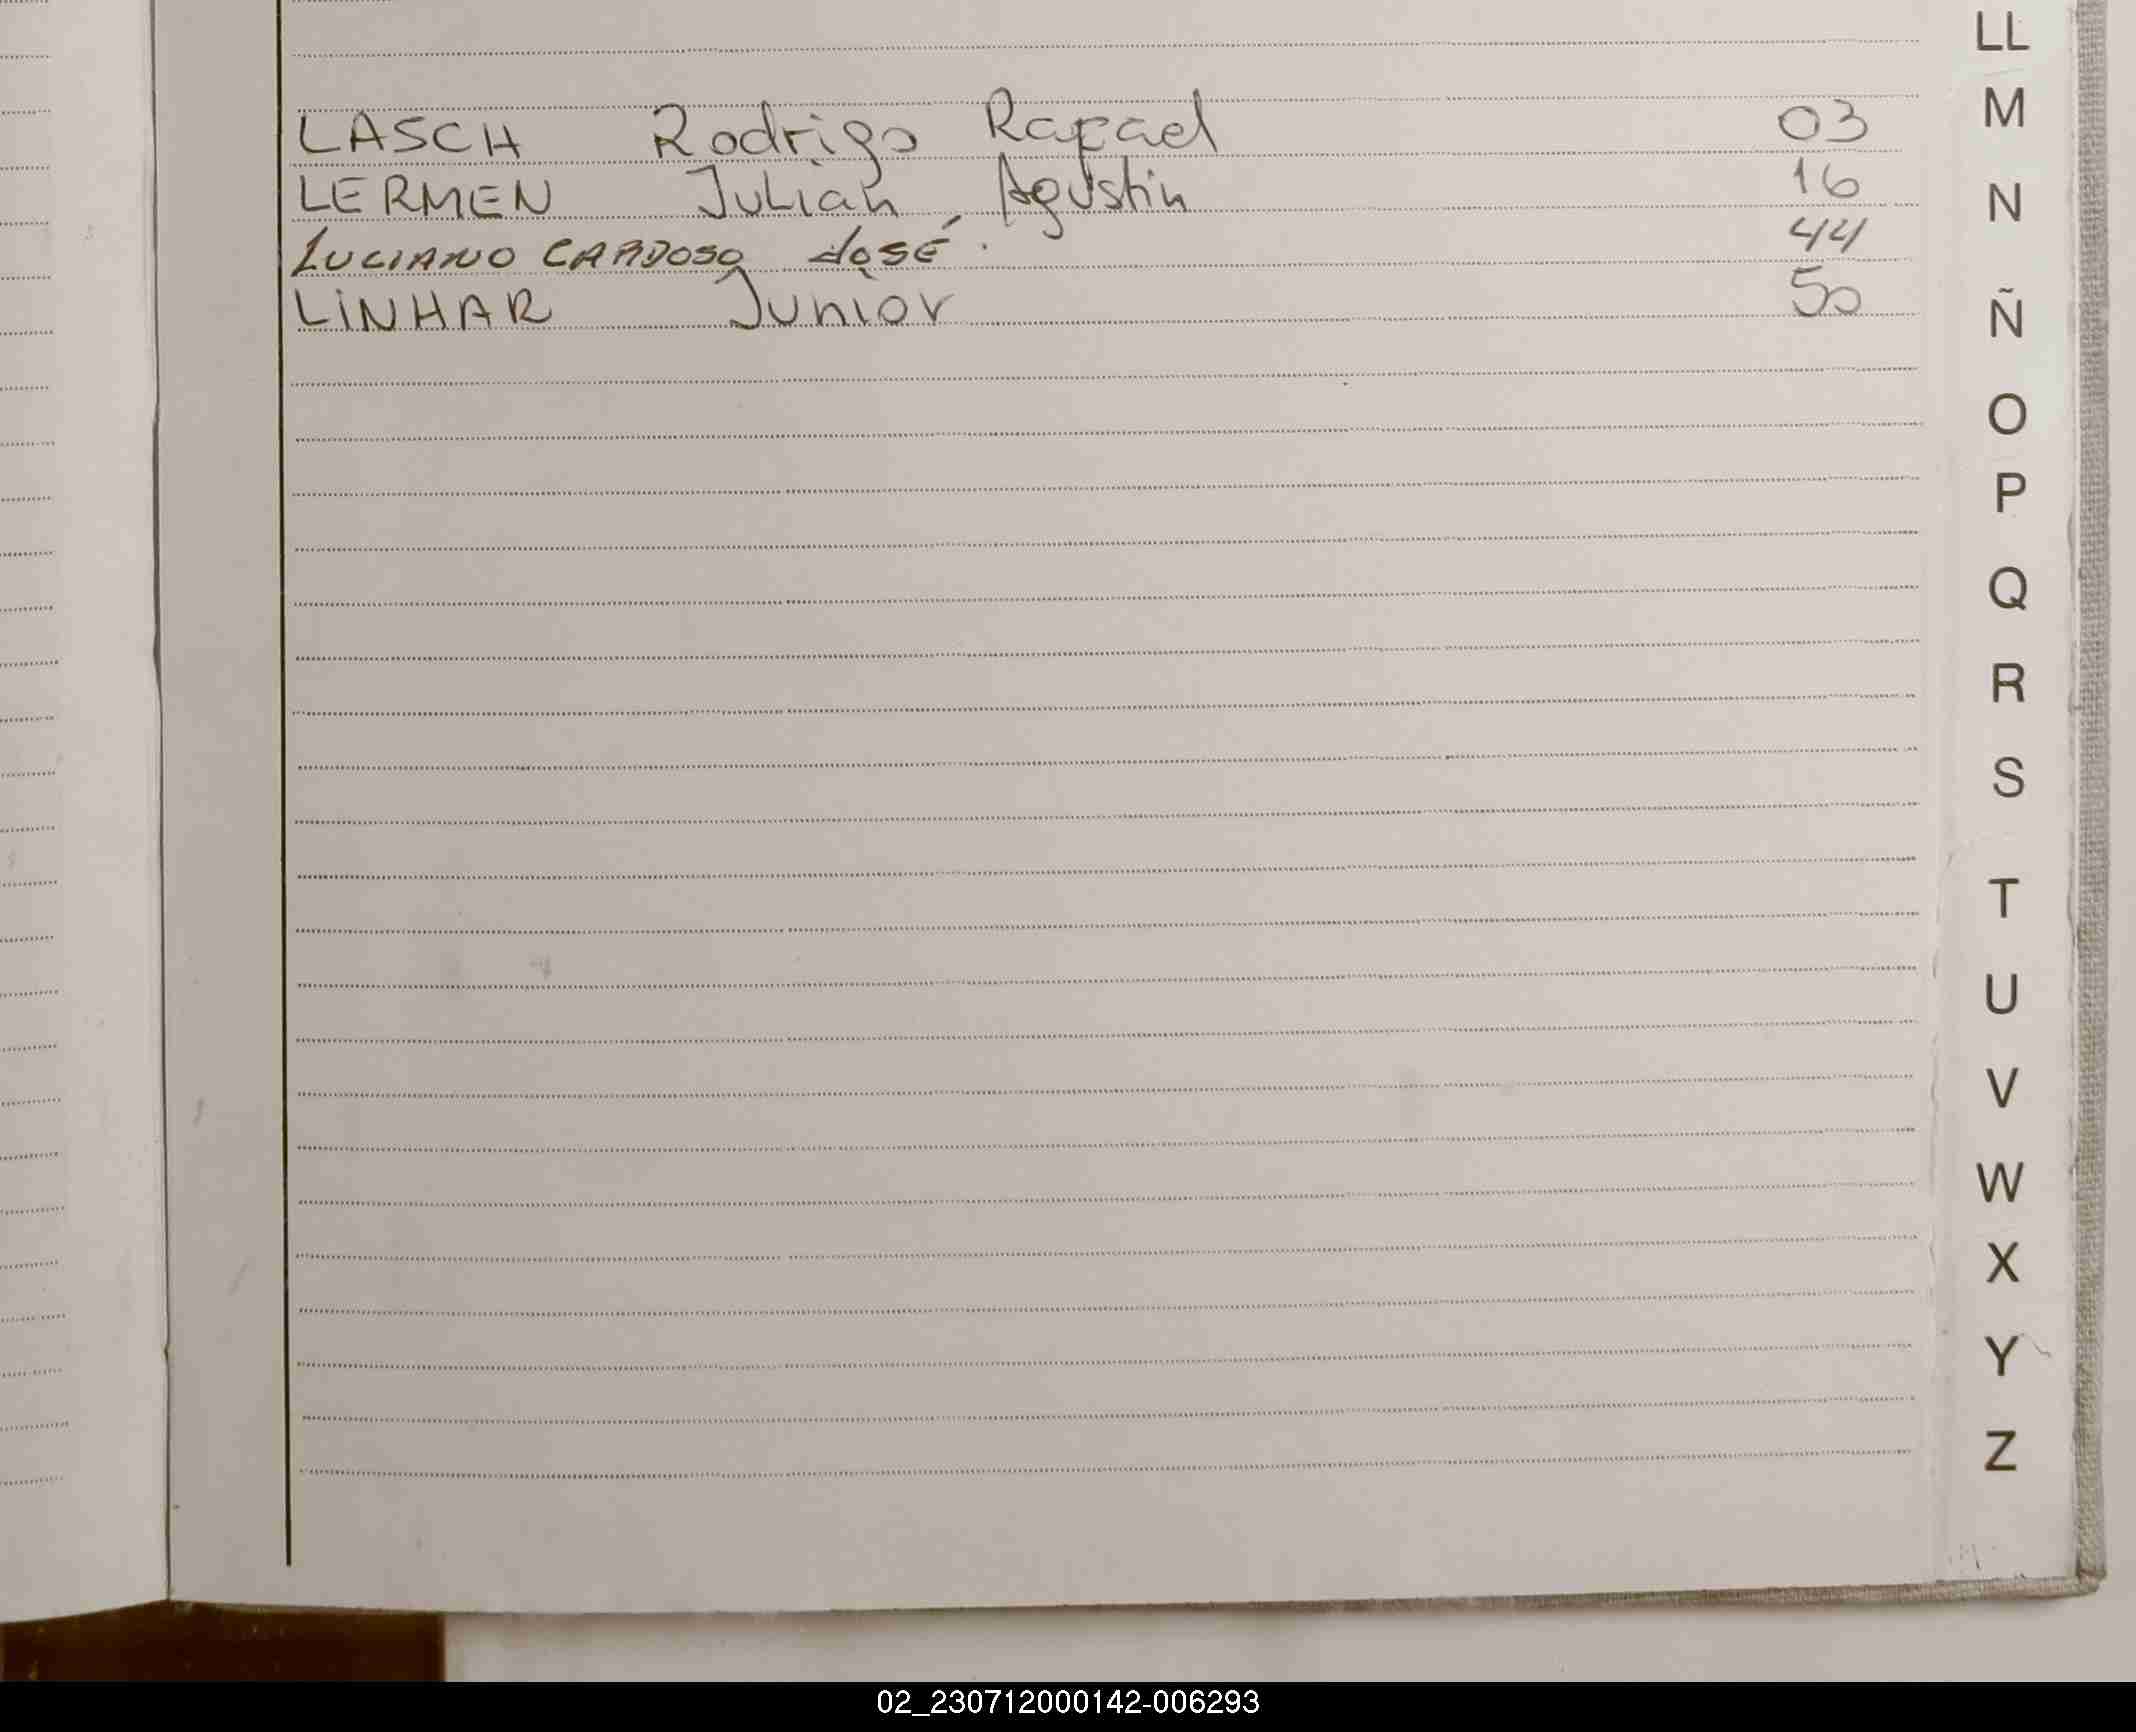 LL
M
LASCH Rodrigo Rafael 03
LERMEN Julian Agustin 16
N
LUCIANO CARDOSO José. 44
LINHAR Junior 50
Ñ
O
P
Q
R
S
T
U
V
W
X
Y
Z
02_230712000142-006293